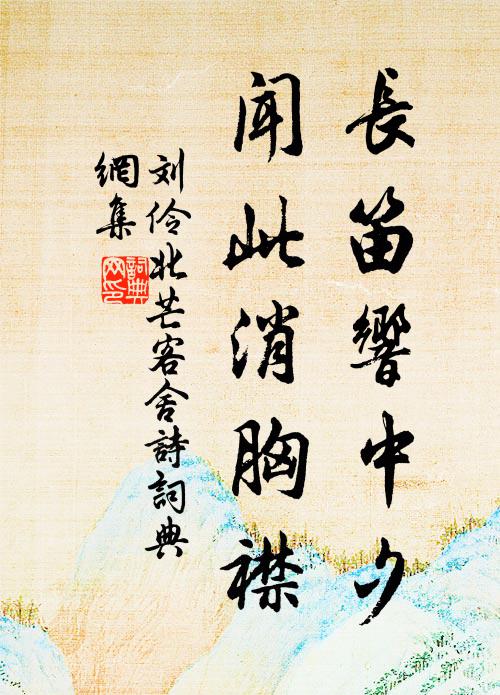 長笛響中夕
聞此消胸襟
刘伶北芒客舍詩詞典
網集
詞典
網印